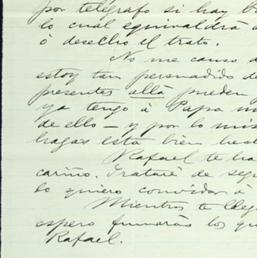 por telégrafo si hay
lo cual equivaldrá á
ó desecho el trato.
No me canso d
estoy tan persuadido d
presentes allá pueden
ya tengo á Papa
de ello — y por lo mis
hagas está bien hech
Rafael te ha
cariño. Trataré de seg
lo quiero convidar á
Mientras te lleg
espero fumarás los qu
Rafael.